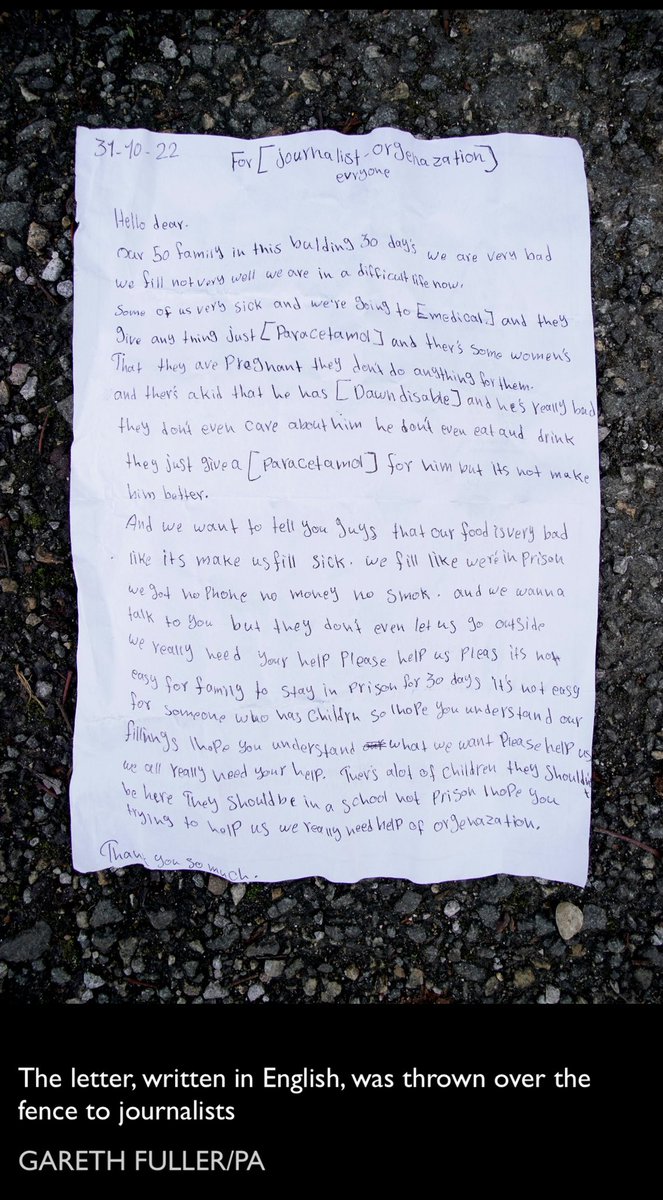 31-10-22
For [journalist-orgenazation]
evryone
Hello dear.
Our 50 family in this bulding 30 day's we are very bad
we fill not very well we are in a difficult life now.
Some of us very sick and we're going to [medical] and they
give any thing just [Paracetamol] and ther's some women's
That they are Pregnant they don't do anything for them.
and ther's a kid that he has [Dawn disable] and he's really bad
they don't even care about him he don't even eat and drink
they just give a [Paracetamol] for him but its not make
him better.
And we want to tell you guys that our food is very bad
like its make us fill sick. we fill like we're in Prison
we got no Phone no money no Smok. and we wanna
talk to you but they don't even let us go outside
we really need your help Please help us Pleas its not
easy for family to stay in Prison for 30 days it's not easy
for someone who has childrn so I hope you understand our
fillings I hope you understand our what we want Please help us
we all really need your help. Ther's alot of children they shouldn't
be here They should be in a school not Prison I hope you
trying to help us we really need help of orgenazation.
Thank you so much.
The letter, written in English, was thrown over the
fence to journalists
GARETH FULLER/PA